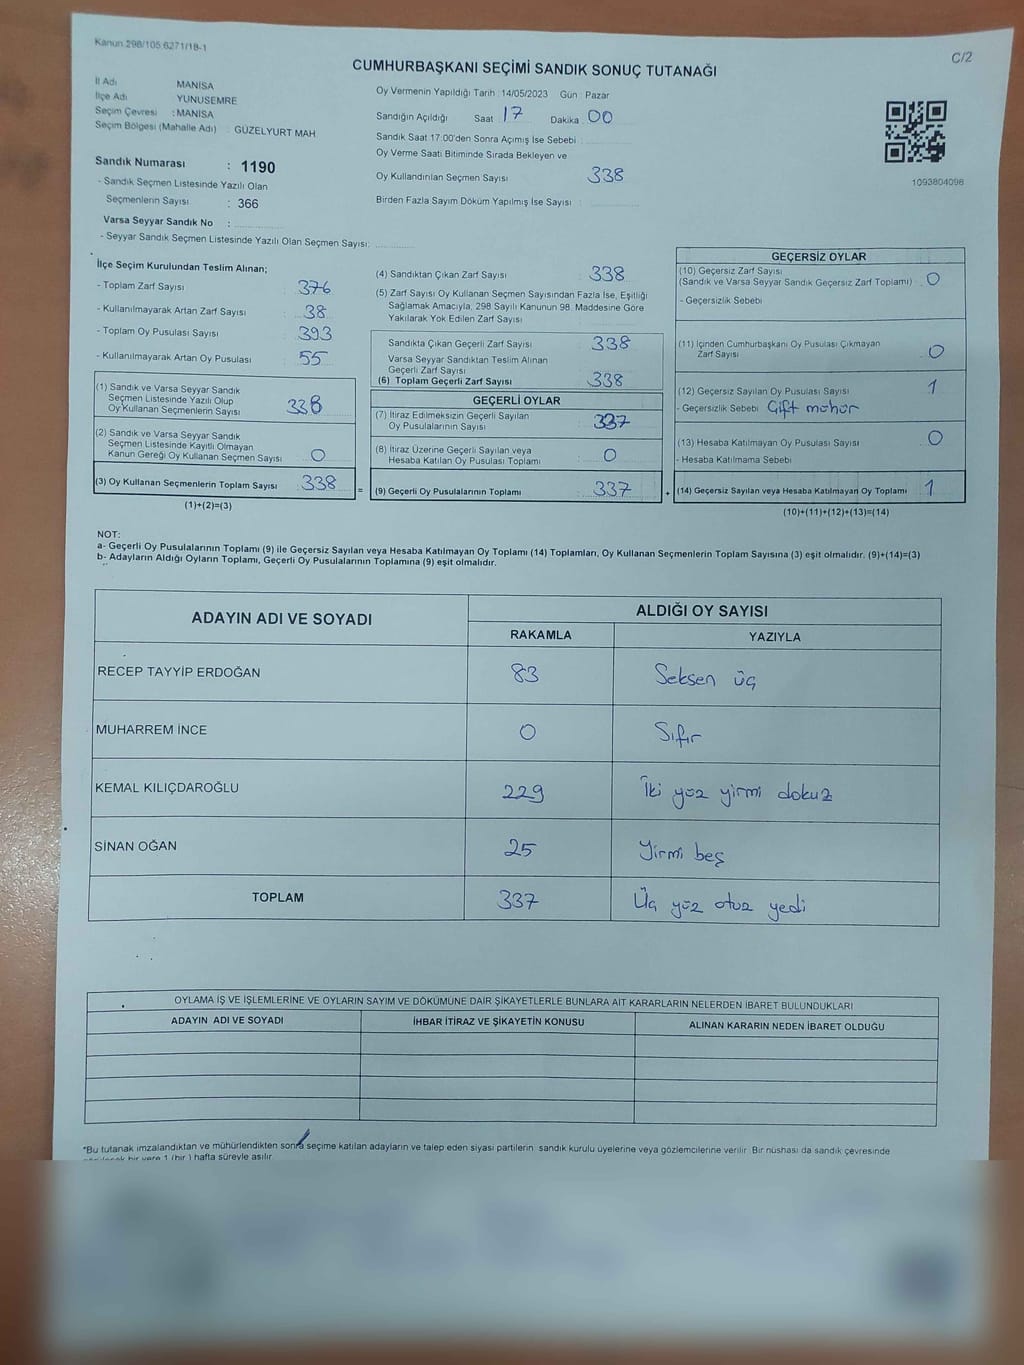 Kanun 298/105 6271/18-1
C/2
CUMHURBAŞKANI SEÇİMİ SANDIK SONUÇ TUTANAĞI
İl Adı MANİSA
İlçe Adı YUNUSEMRE
Seçim Çevresi : MANİSA
Seçim Bölgesi (Mahalle Adı) : GÜZELYURT MAH.
Sandık Numarası : 1190
- Sandık Seçmen Listesinde Yazılı Olan
Seçmenlerin Sayısı : 366
Varsa Seyyar Sandık No :
- Seyyar Sandık Seçmen Listesinde Yazılı Olan Seçmen Sayısı:
Oy Vermenin Yapıldığı Tarih :14/05/2023 Gün : Pazar
Sandığın Açıldığı Saat 17 Dakika 00
Sandık Saat 17:00'den Sonra Açımış İse Sebebi :
Oy Verme Saati Bitiminde Sırada Bekleyen ve
Oy Kullandırılan Seçmen Sayısı 338
Birden Fazla Sayım Döküm Yapılmış İse Sayısı :
1093804096
İlçe Seçim Kurulundan Teslim Alınan;
- Toplam Zarf Sayısı : 376
- Kullanılmayarak Artan Zarf Sayısı : 38
- Toplam Oy Pusulası Sayısı : 393
- Kullanılmayarak Artan Oy Pusulası : 55
(1) Sandık ve Varsa Seyyar Sandık
Seçmen Listesinde Yazılı Olup
Oy Kullanan Seçmenlerin Sayısı 338
(2) Sandık ve Varsa Seyyar Sandık
Seçmen Listesinde Kayıtlı Olmayan
Kanun Gereği Oy Kullanan Seçmen Sayısı 0
(3) Oy Kullanan Seçmenlerin Toplam Sayısı : 338
(1)+(2)=(3)
=
(4) Sandıktan Çıkan Zarf Sayısı : 338
(5) Zarf Sayısı Oy Kullanan Seçmen Sayısından Fazla İse, Eşitliği
Sağlamak Amacıyla, 298 Sayılı Kanunun 98. Maddesine Göre
Yakılarak Yok Edilen Zarf Sayısı :
Sandıkta Çıkan Geçerli Zarf Sayısı : 338
Varsa Seyyar Sandıktan Teslim Alınan
Geçerli Zarf Sayısı
(6) Toplam Geçerli Zarf Sayısı : 338
GEÇERLİ OYLAR
(7) İtiraz Edilmeksizin Geçerli Sayılan
Oy Pusulalarının Sayısı : 337
(8) İtiraz Üzerine Geçerli Sayılan veya
Hesaba Katılan Oy Pusulası Toplamı : 0
(9) Geçerli Oy Pusulalarının Toplamı : 337
+
GEÇERSİZ OYLAR
(10) Geçersiz Zarf Sayısı
(Sandık ve Varsa Seyyar Sandık Geçersiz Zarf Toplamı) : 0
- Geçersizlik Sebebi
(11) İçinden Cumhurbaşkanı Oy Pusulası Çıkmayan
Zarf Sayısı 0
(12) Geçersiz Sayılan Oy Pusulası Sayısı 1
- Geçersizlik Sebebi Çift mühür
(13) Hesaba Katılmayan Oy Pusulası Sayısı 0
- Hesaba Katılmama Sebebi
(14) Geçersiz Sayılan veya Hesaba Katılmayan Oy Toplamı : 1
(10)+(11)+(12)+(13)=(14)
NOT:
a- Geçerli Oy Pusulalarının Toplamı (9) ile Geçersiz Sayılan veya Hesaba Katılmayan Oy Toplamı (14) Toplamları, Oy Kullanan Seçmenlerin Toplam Sayısına (3) eşit olmalıdır. (9)+(14)=(3)
b- Adayların Aldığı Oyların Toplamı, Geçerli Oy Pusulalarının Toplamına (9) eşit olmalıdır.
ADAYIN ADI VE SOYADI ALDIĞI OY SAYISI
RAKAMLA YAZIYLA
RECEP TAYYİP ERDOĞAN 83 Seksen üç
MUHARREM İNCE 0 Sıfır
KEMAL KILIÇDAROĞLU 229 İki yüz yirmi dokuz
SİNAN OĞAN 25 Yirmi beş
TOPLAM 337 Üç yüz otuz yedi
OYLAMA İŞ VE İŞLEMLERİNE VE OYLARIN SAYIM VE DÖKÜMÜNE DAİR ŞİKAYETLERLE BUNLARA AİT KARARLARIN NELERDEN İBARET BULUNDUKLARI
ADAYIN ADI VE SOYADI İHBAR İTİRAZ VE ŞİKAYETİN KONUSU ALINAN KARARIN NEDEN İBARET OLDUĞU
*Bu tutanak imzalandıktan ve mühürlendikten sonra seçime katılan adayların ve talep eden siyasi partilerin sandık kurulu üyelerine veya gözlemcilerine verilir. Bir nüshası da sandık çevresinde
bir yere 1 (bir) hafta süreyle asılır.